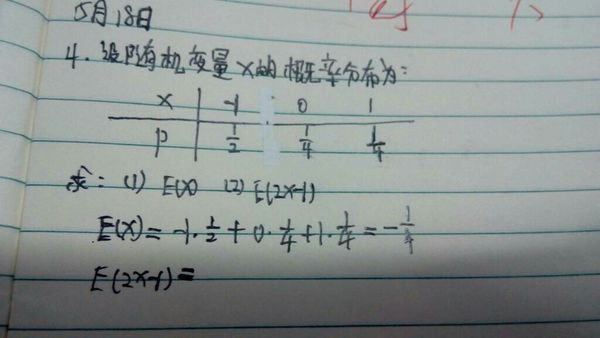 5月18日
4. 设随机变量X的概率分布为:
X -1 0 1
P 1/2 1/4 1/4
求: (1) E(X) (2) E(2X-1)
E(X) = -1·1/2 + 0·1/4 + 1·1/4 = -1/4
E(2X-1) =